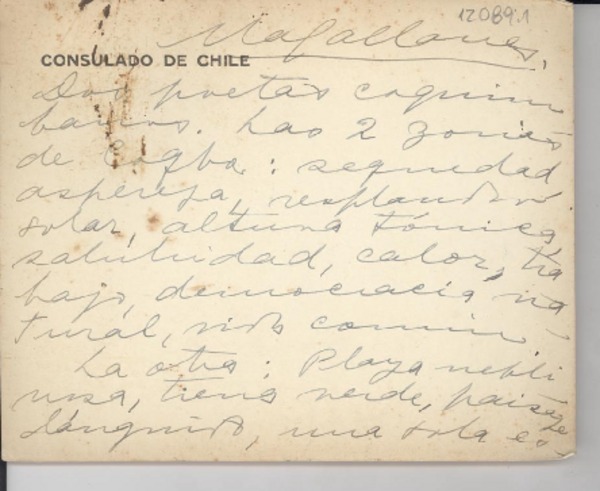 120891
Magallanes.
CONSULADO DE CHILE
Dos poetas coquim
banos. Las 2 zonas
de Coqbo: sequedad
aspereza, resplandor
solar, altura tónica,
salubridad, calor, tra
bajo, democracia na-
tural, vida común
La otra: Playa nebli
nosa, tierra verde, paisaje
lánguido, una sola